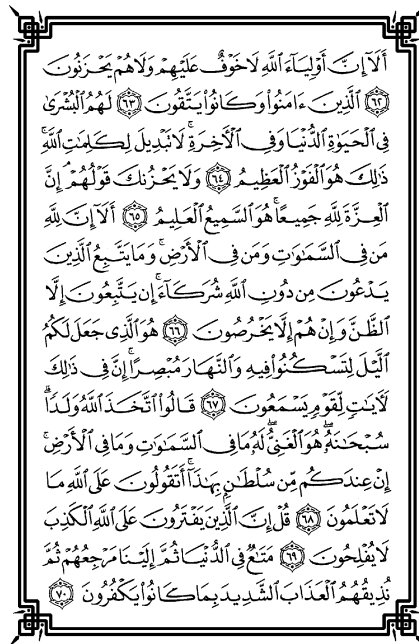 أَلَآ إِنَّ أَوْلِيَآءَ ٱللَّهِ لَا خَوْفٌ عَلَيْهِمْ وَلَا هُمْ يَحْزَنُونَ
٦٢ ٱلَّذِينَ ءَامَنُوا۟ وَكَانُوا۟ يَتَّقُونَ ٦٣ لَهُمُ ٱلْبُشْرَىٰ
فِى ٱلْحَيَوٰةِ ٱلدُّنْيَا وَفِى ٱلْءَاخِرَةِ ۚ لَا تَبْدِيلَ لِكَلِمَٰتِ ٱللَّهِ ۚ
ذَٰلِكَ هُوَ ٱلْفَوْزُ ٱلْعَظِيمُ ٦٤ وَلَا يَحْزُنكَ قَوْلُهُمْ ۘ إِنَّ
ٱلْعِزَّةَ لِلَّهِ جَمِيعًا ۚ هُوَ ٱلسَّمِيعُ ٱلْعَلِيمُ ٦٥ أَلَآ إِنَّ لِلَّهِ
مَن فِى ٱلسَّمَٰوَٰتِ وَمَن فِى ٱلْأَرْضِ ۗ وَمَا يَتَّبِعُ ٱلَّذِينَ
يَدْعُونَ مِن دُونِ ٱللَّهِ شُرَكَآءَ ۚ إِن يَتَّبِعُونَ إِلَّا
ٱلظَّنَّ وَإِنْ هُمْ إِلَّا يَخْرُصُونَ ٦٦ هُوَ ٱلَّذِى جَعَلَ لَكُمُ
ٱلَّيْلَ لِتَسْكُنُوا۟ فِيهِ وَٱلنَّهَارَ مُبْصِرًا ۚ إِنَّ فِى ذَٰلِكَ
لَءَايَٰتٍ لِّقَوْمٍ يَسْمَعُونَ ٦٧ قَالُوا۟ ٱتَّخَذَ ٱللَّهُ وَلَدًا ۗ
سُبْحَٰنَهُۥ ۖ هُوَ ٱلْغَنِىُّ ۖ لَهُۥ مَا فِى ٱلسَّمَٰوَٰتِ وَمَا فِى ٱلْأَرْضِ ۚ
إِنْ عِندَكُم مِّن سُلْطَٰنٍۭ بِهَٰذَآ ۚ أَتَقُولُونَ عَلَى ٱللَّهِ مَا
لَا تَعْلَمُونَ ٦٨ قُلْ إِنَّ ٱلَّذِينَ يَفْتَرُونَ عَلَى ٱللَّهِ ٱلْكَذِبَ
لَا يُفْلِحُونَ ٦٩ مَتَٰعٌ فِى ٱلدُّنْيَا ثُمَّ إِلَيْنَا مَرْجِعُهُمْ ثُمَّ
نُذِيقُهُمُ ٱلْعَذَابَ ٱلشَّدِيدَ بِمَا كَانُوا۟ يَكْفُرُونَ ٧٠